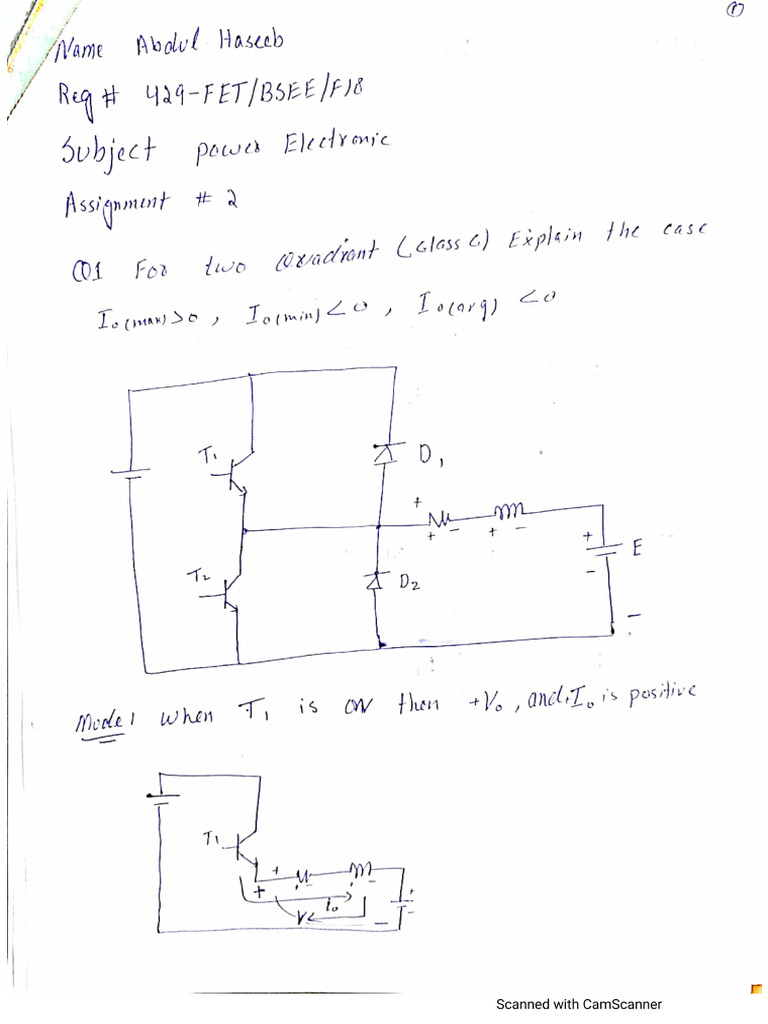 ①
Name Abdul Haseeb
Reg # 429-FET/BSEE/F18
Subject power Electronic
Assignment # 2
Q1 For two Quadrant (Class C) Explain the case
Io(max)>0, Io(min)<0, Io(avg) <0
T1
D1
+
+ -
+ -
+
-
E
T2
D2
-
Mode 1 when T1 is ON then +Vo, and Io is positive
T1
+
+
io
V
-
Scanned with CamScanner